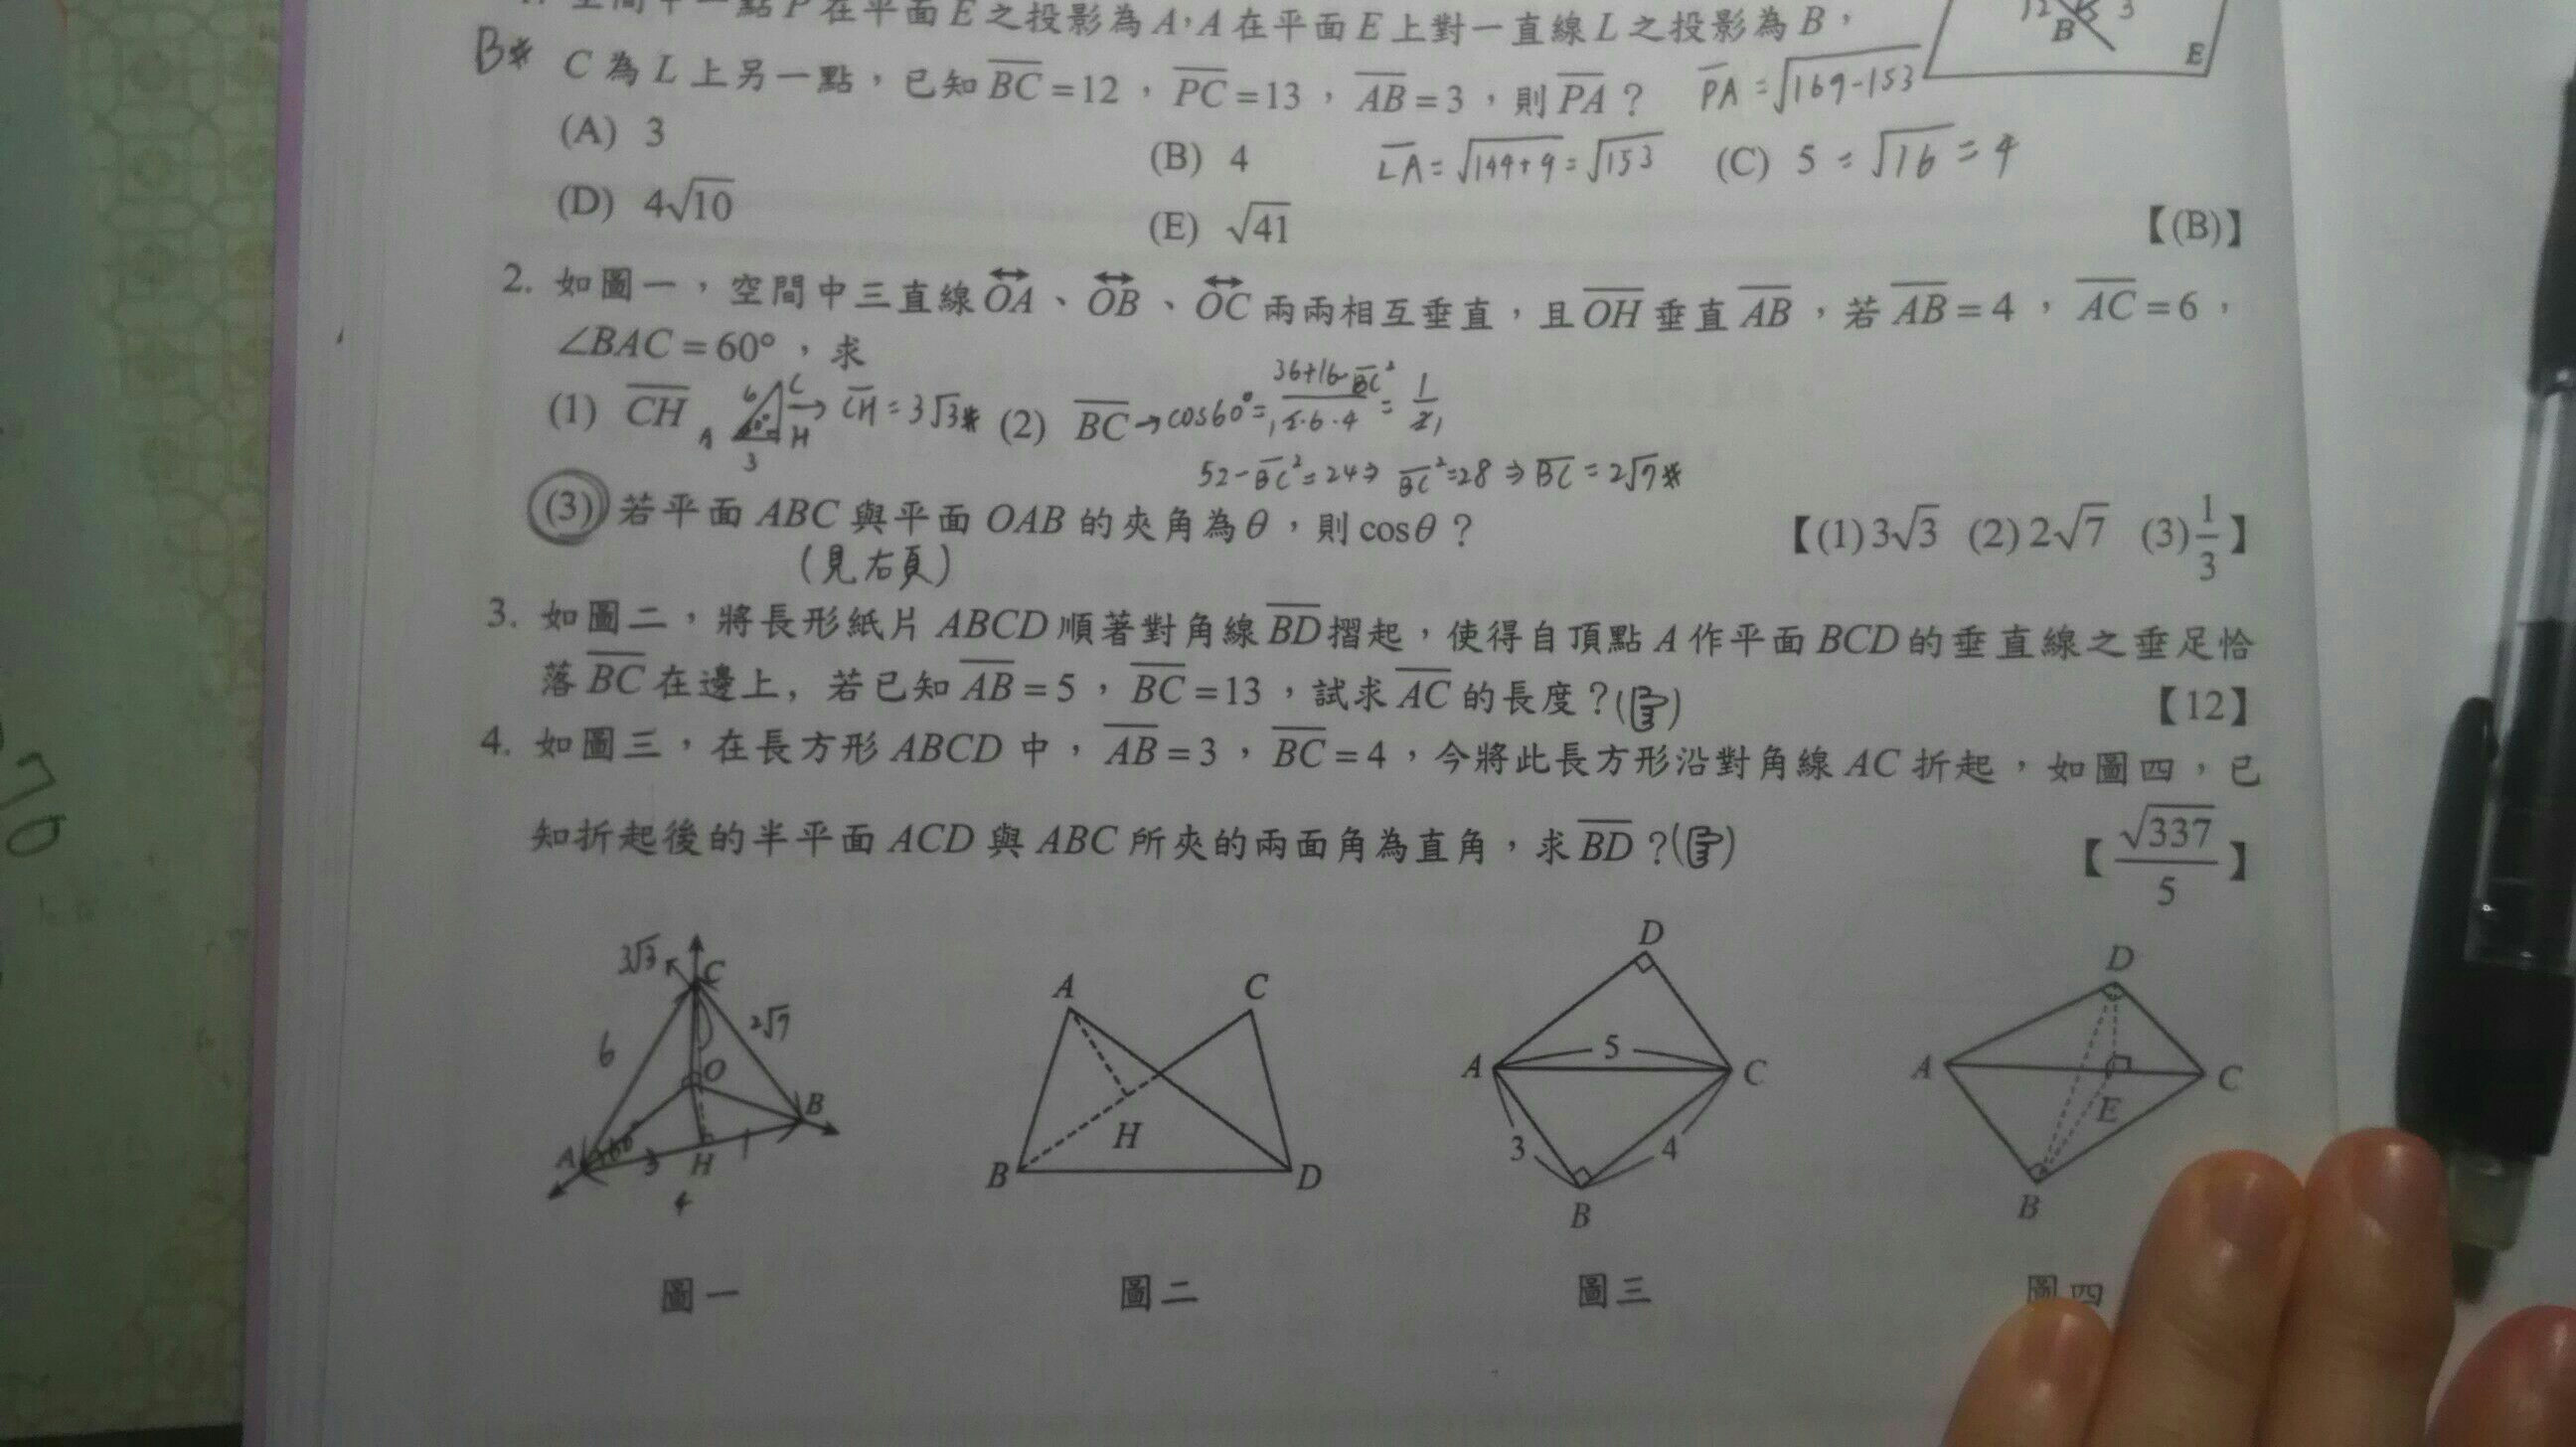 空間中一點P在平面E之投影為A,A在平面E上對一直線L之投影為B,
B* C為L上另一點,已知BC=12,PC=13,AB=3,則PA? PA=√169-153
12 B 3 E
(A) 3 (B) 4 LA=√144+9=√153 (C) 5 =√16=4
(D) 4√10 (E) √41 【(B)】
2. 如圖一,空間中三直線OA、OB、OC兩兩相互垂直,且OH垂直AB,若AB=4,AC=6,
∠BAC=60°,求
(1) CH 6 C A H 3 → CH=3√3* (2) BC→cos60°=36+16-BC²/2·6·4=1/2
52-BC²=24⇒BC²=28⇒BC=2√7*
(3) 若平面ABC與平面OAB的夾角為θ,則cosθ? 【(1)3√3 (2)2√7 (3)1/3】
(見右頁)
3. 如圖二,將長形紙片ABCD順著對角線BD摺起,使得自頂點A作平面BCD的垂直線之垂足恰
落BC在邊上,若已知AB=5,BC=13,試求AC的長度? 【12】
4. 如圖三,在長方形ABCD中,AB=3,BC=4,今將此長方形沿對角線AC折起,如圖四,已
知折起後的半平面ACD與ABC所夾的兩面角為直角,求BD? 【√337/5】
3√3 C 2√7 6 O B A 60° 3 H 1 4
A C H B D
D A 5 C 3 4 B
D A C E B
圖一 圖二 圖三 圖四